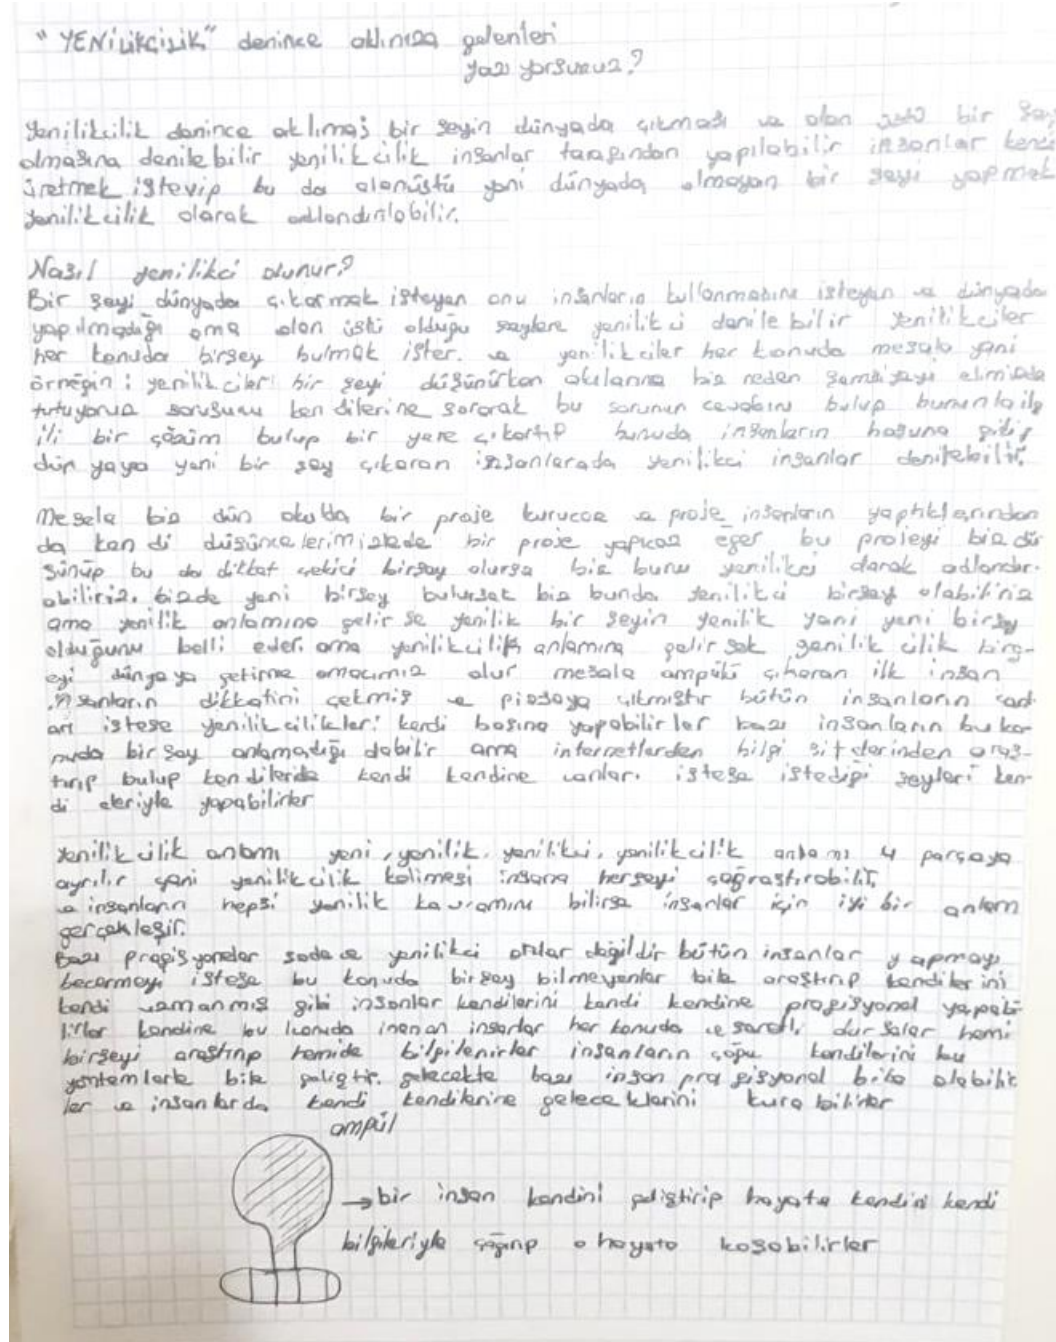 "YENİLİKÇİLİK" denince aklınıza gelenleri
yazıyorsunuz?
Yenilikcilik denince aklımas bir şeyin dünyada çıkması ve olan üstü bir şey
olmasına denilebilir yenilikcilik insanlar tarafından yapılabilir insanlar kendi
üretmek isteyip bu da olanüstü yani dünyada olmayan bir şeyi yapmak
yenilikcilik olarak adlandırılabilir.
Nasıl yenilikci olunur?
Bir şeyi dünyada çıkarmak isteyen onu insanların kullanmasını isteyen ve dünyada
yapılmadığı ama olan üstü olduğu şeylere yenilikci denilebilir yenilikciler
her konuda birşey bulmak ister. ve yenilikciler her konuda mesala yani
örneğin: yenilikciler bir şeyi düşünürken akılarına biz neden şemsiyeyi elimizde
tutuyoruz sorusunu kendilerine sorarak bu sorunun cevabını bulup bununla ilg
ili bir çözüm bulup bir yere çıkartıp bunuda insanların hoşuna gidip
dünyaya yeni bir şey çıkaran insanlarada yenilikci insanlar denilebilir.
Mesela biz dün okulda bir proje kurucaz ve proje insanların yaptıklarından
da kendi düşüncelerimizlede bir proje yapıcaz eğer bu projeyi biz dü
şünüp bu da dikkat çekici birşey olursa biz bunu yenilikci olarak adlandır.
abiliriz. bizde yeni birşey bulursak biz bunda yenilikci birşey olabiliriz
ama yenilik anlamına gelirse yenilik bir şeyin yenilik yani yeni birşey
olduğunu belli eder. ama yenilikcilik anlamına gelirsek yenilikcilik birş-
eyi dünyaya getirme amacımız olur mesala ampülü çıkaran ilk insan
insanların dikkatini çekmiş ve piasaya çıkmıştır bütün insanların
arı istese yenilikcilikleri kendi başına yapabilirler bazı insanların bu ko-
nuda birşey anlamadığı olabilir ama internetlerden bilgi sitelerinden araş-
tırıp bulup kendileride kendi kendine istese istediği şeyleri ken-
di eleriyle yapabilirler
Yenilikcilik anlamı yeni, yenilik, yenilikci, yenilikcilik anlamı 4 parçaya
ayrılır yani yenilikcilik kelimesi insana herşeyi çağraştırabilir.
ve insanların hepsi yenilik kavramını bilirse insanlar için iyi bir anlam
gerçekleşir.
Bazı profisyoneler sadece yenilikci onlar değildir bütün insanlar yapmayı
becermeyi istese bu konuda birşey bilmeyenler bile araştırıp kendilerini
kendi uzmanmış gibi insanlar kendilerini kendi kendine profisyonel yapabi
lirler kendine bu konuda inanan insanlar her konuda cesaretli dursalar hemi
birşeyi araştırıp hemide bilgilenirler insanların çoğu kendilerini bu
yöntemlerle bile geliştir. gelecekte bazı insan profisyonel bile olabilir
ler ve insanlarda kendi kendilerine geleceklerini kurabilirler
ampül
→ bir insan kendini geliştirip hayata kendini kendi
bilgileriyle çağırıp o hayata koşabilirler